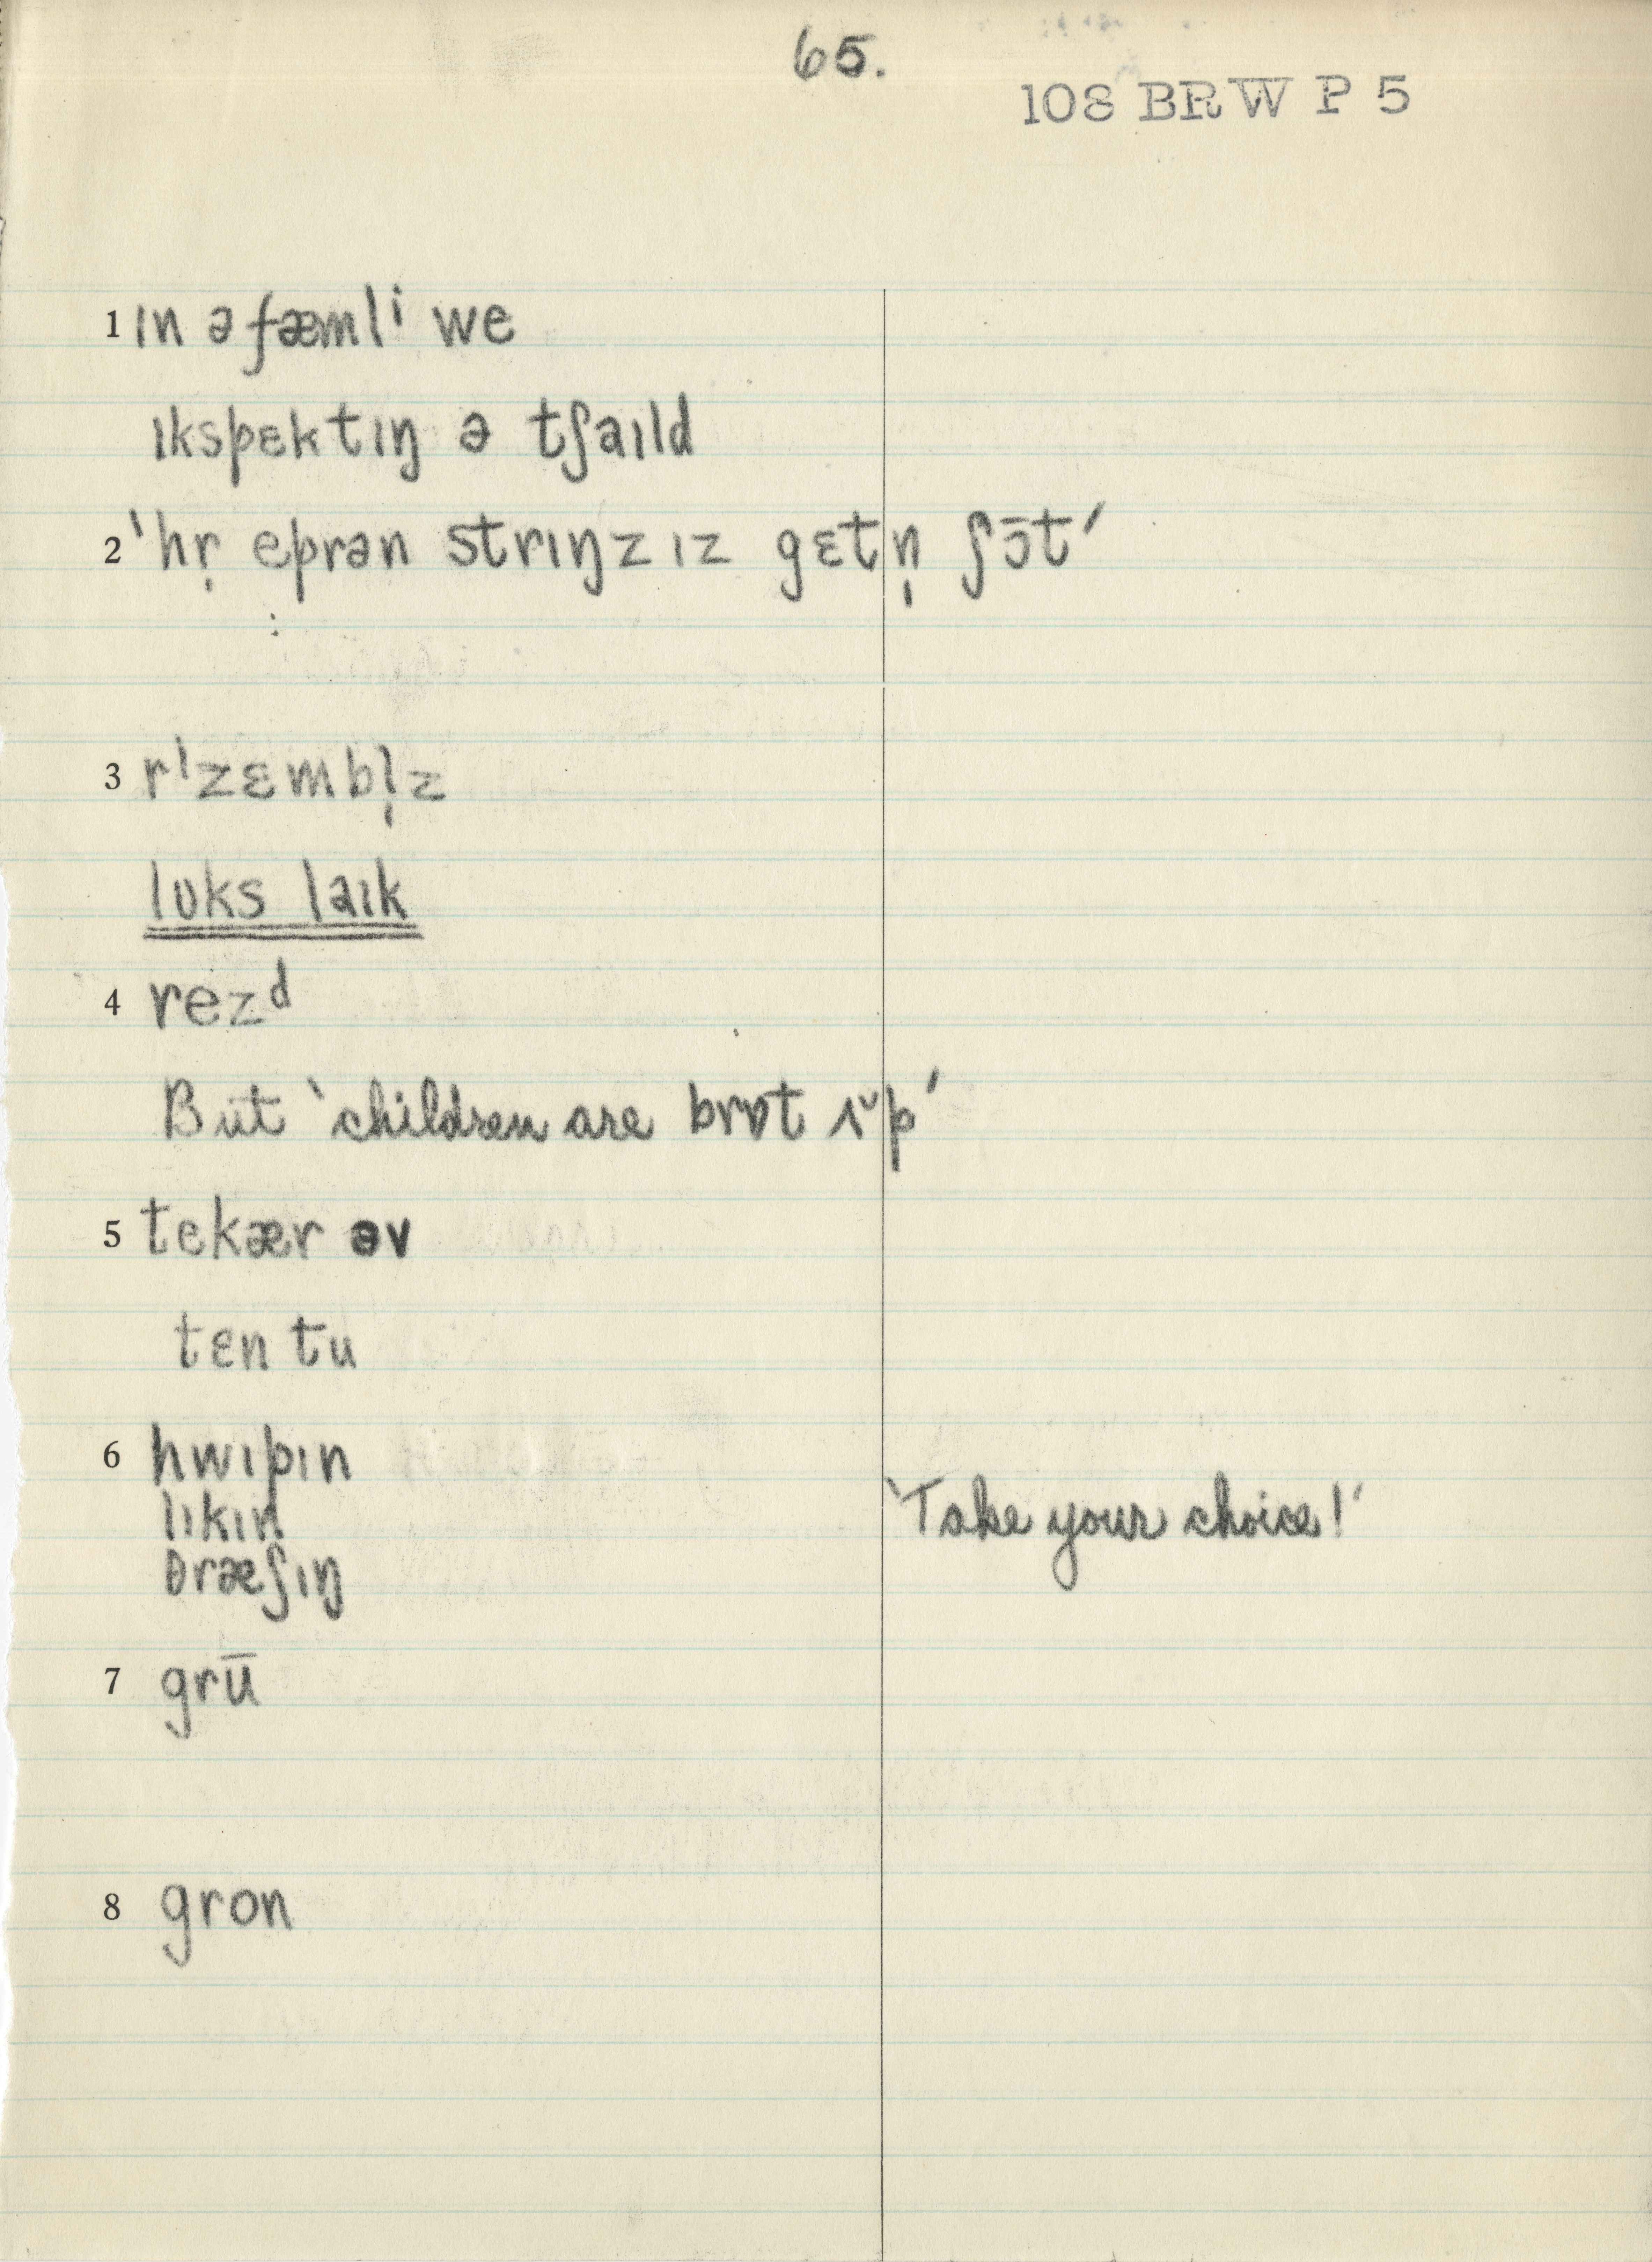 65.
108 BRW P 5
1 ɪn ə fæmlⁱ we
ɪkspɛktɪŋ ə tʃaɪld
2 'hr̩ eprən strɪŋz ɪz gɛtn̩ ʃɔ̄t'
3 rᴵzɛmbl̩z
lʊks laɪk
4 rezᵈ
But 'children are brɒt ʌ̆p'
5 tekær əv
tɛn tu
6 hwɪpɪn
lɪkɪn
θræʃɪŋ
'Take your choice!'
7 grū
8 gron